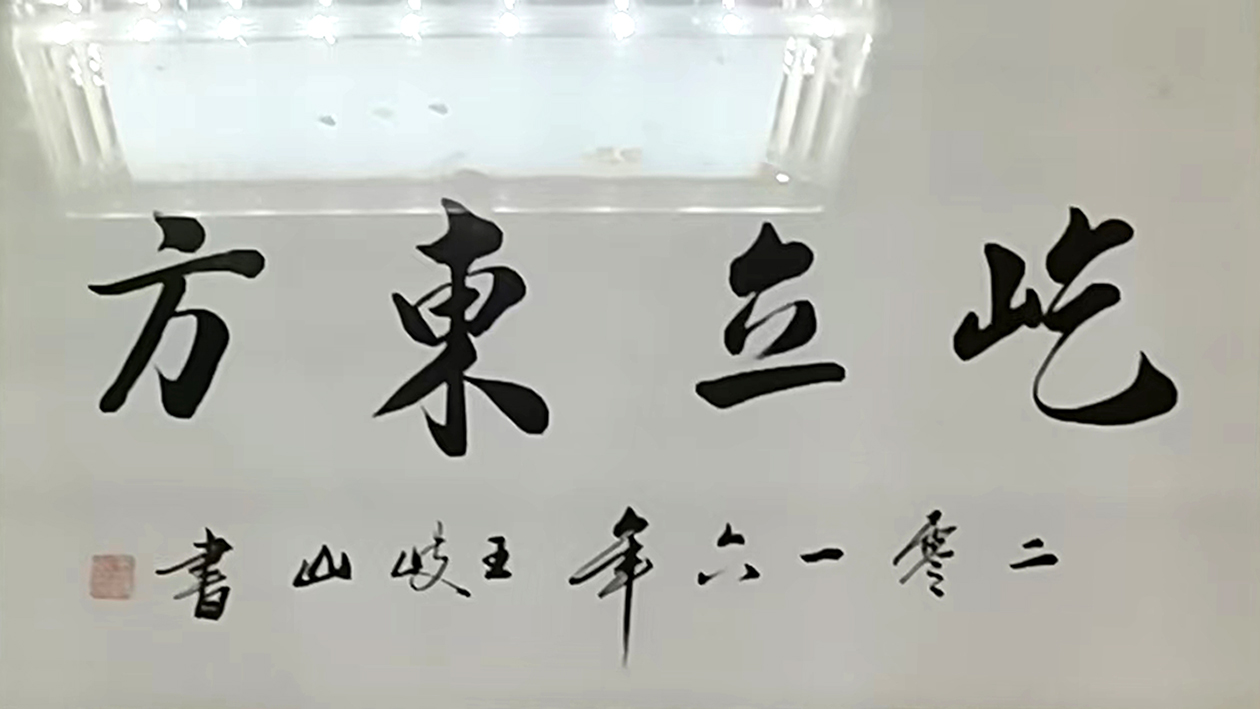 屹立東方
二零一六年王岐山書